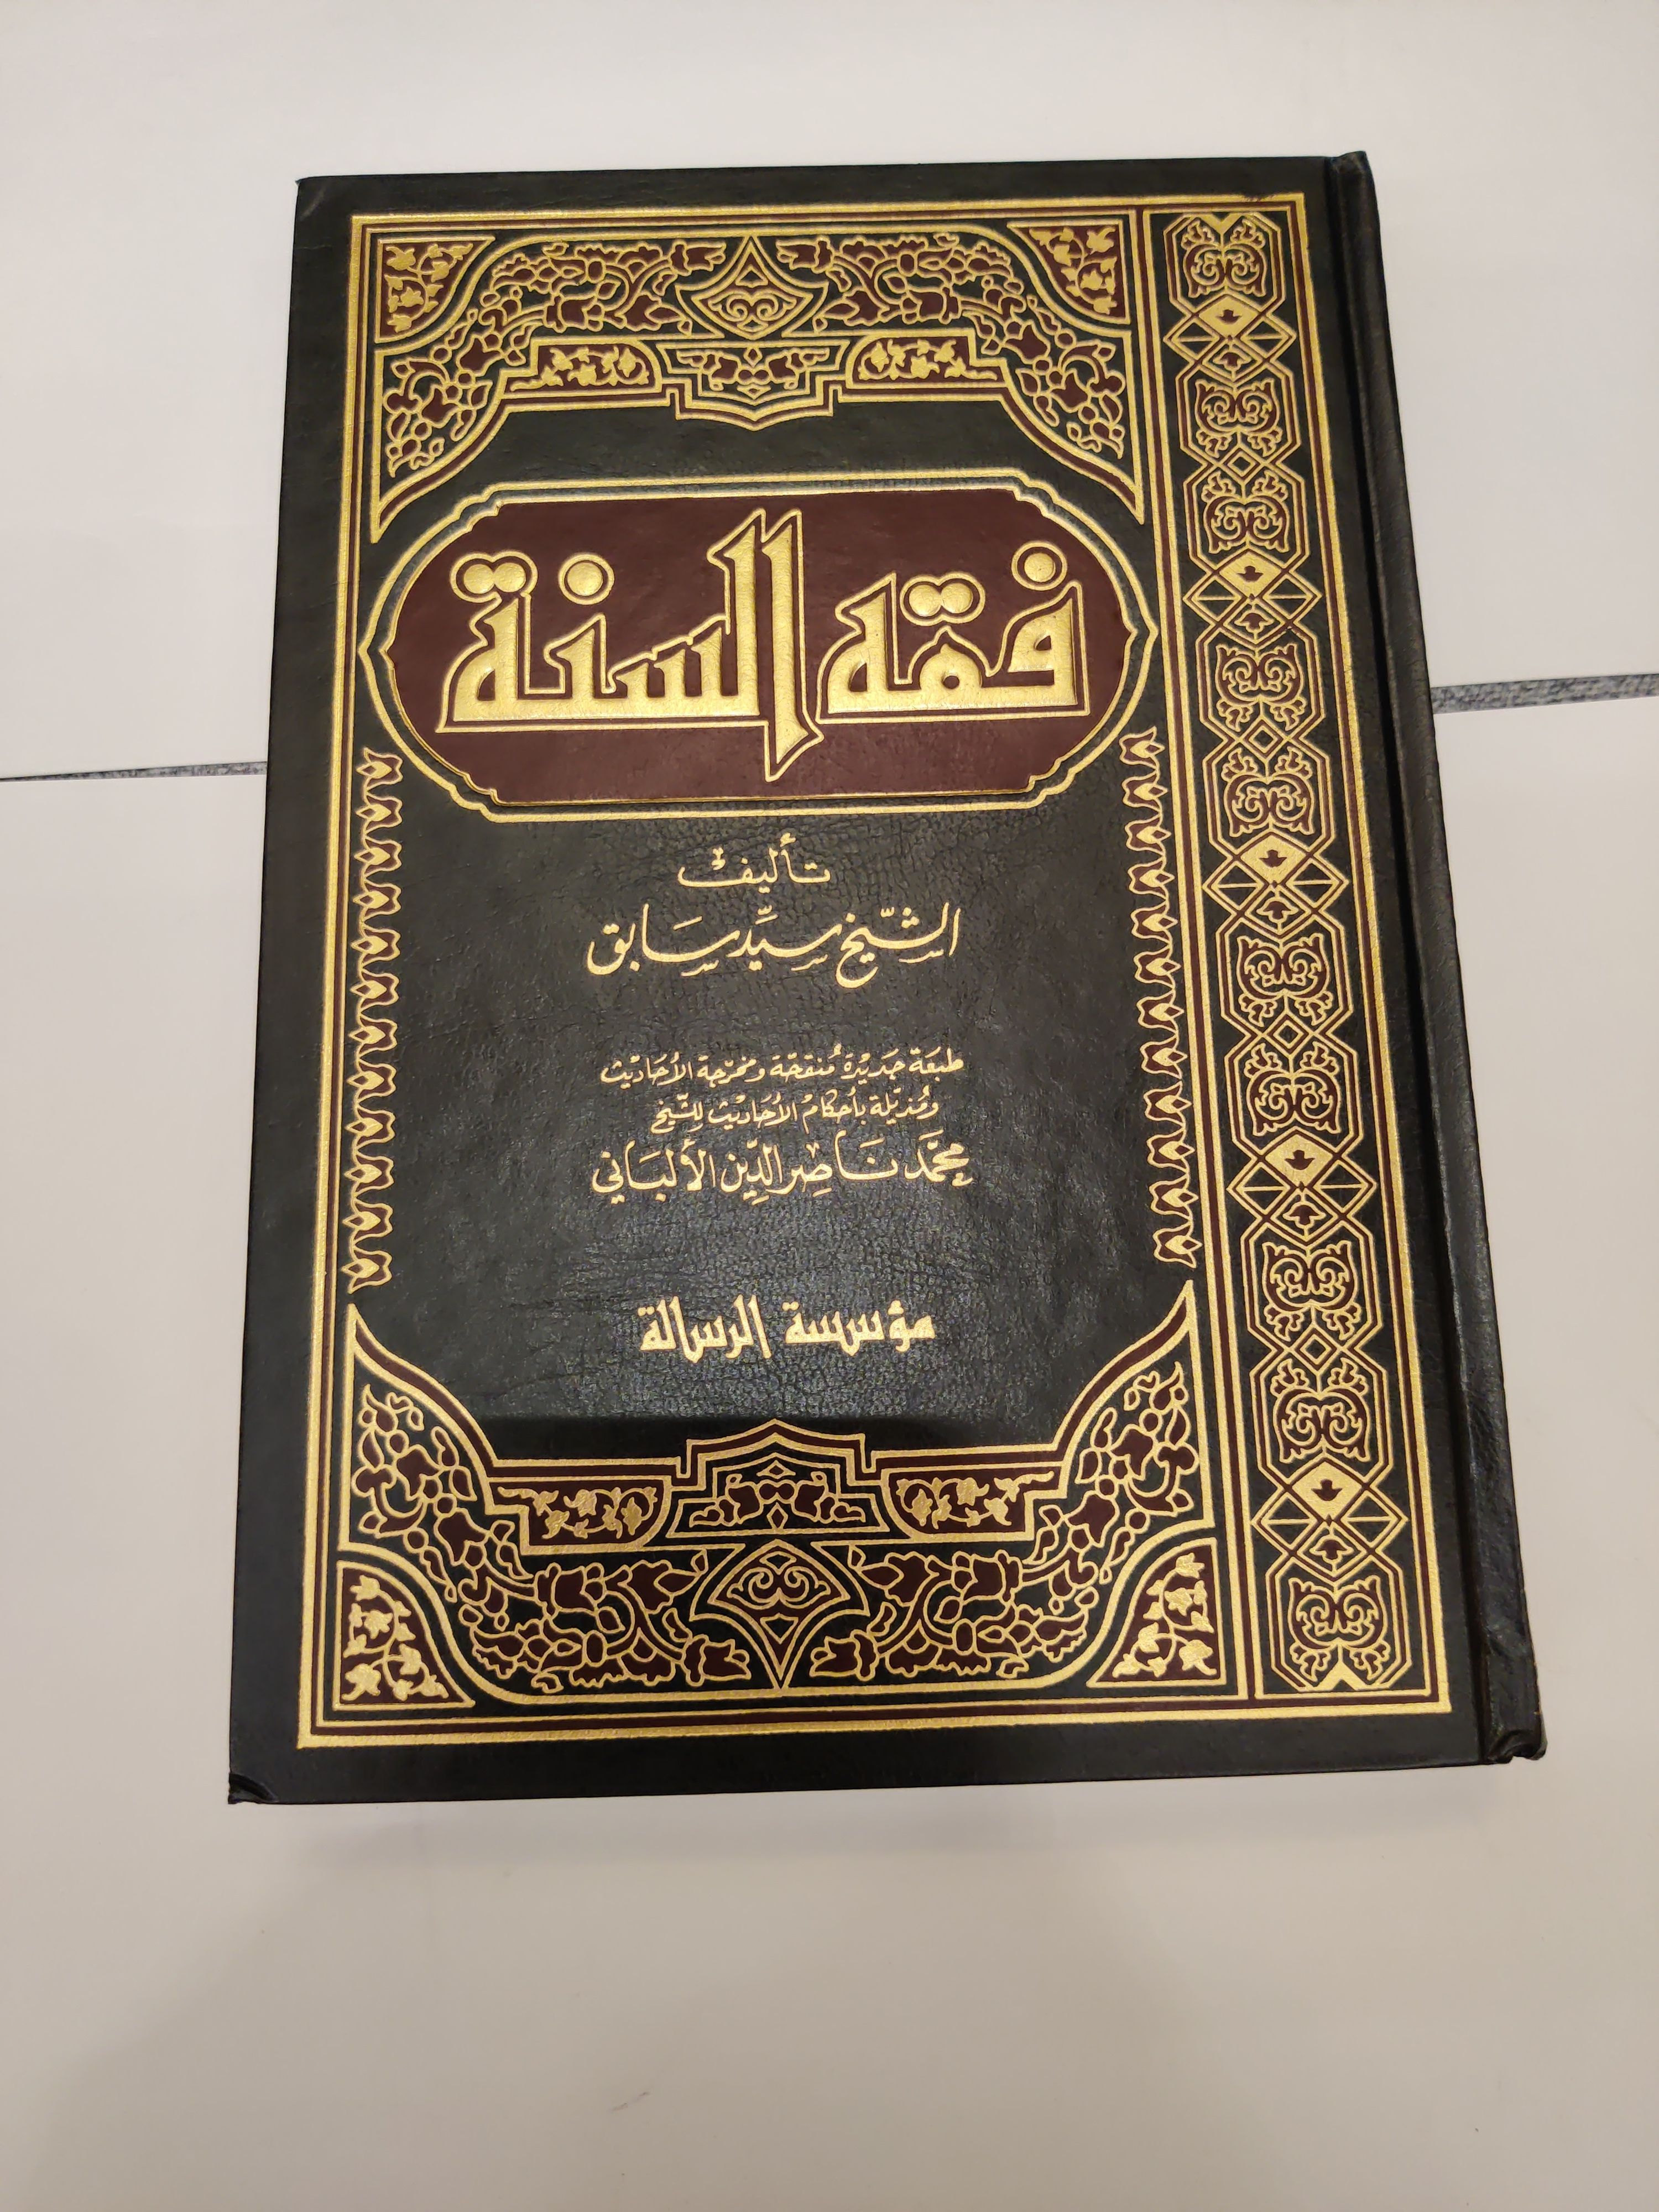 فقه السنة
تأليف
الشيخ سيد سابق
طبعة جديدة منقحة ومخرجة الأحاديث
ومذيلة بأحكام الأحاديث للشيخ
محمد ناصر الدين الألباني
مؤسسة الرسالة